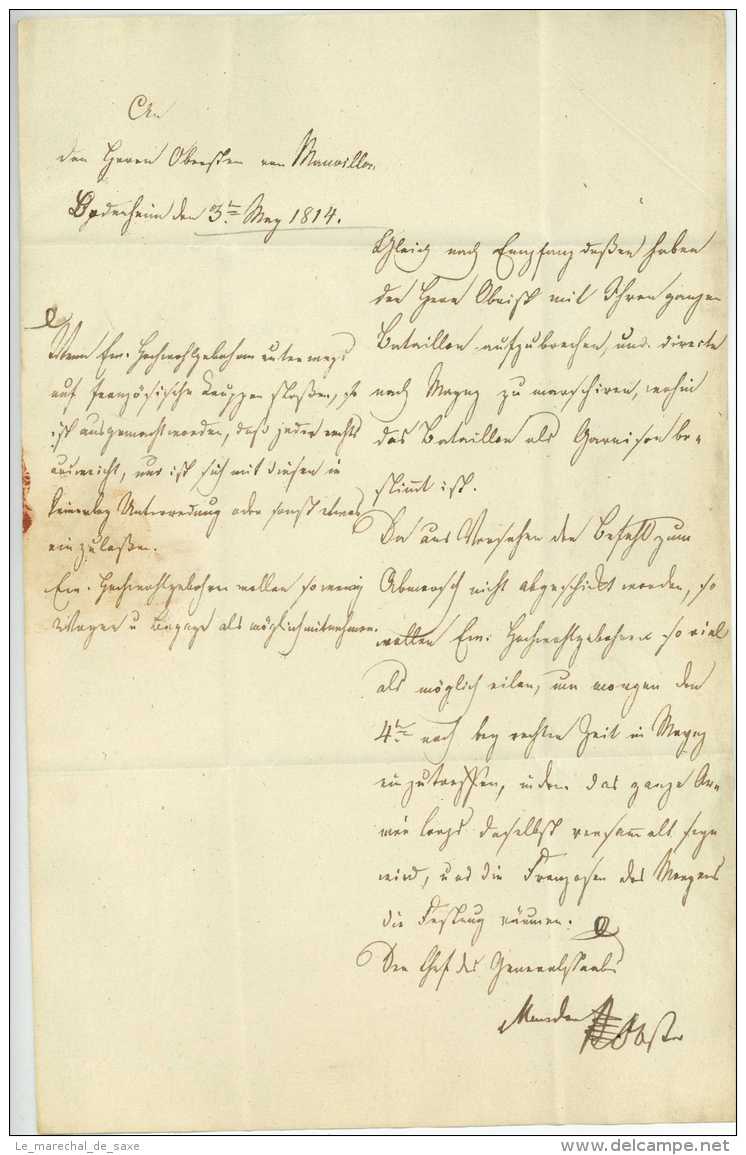 An
den Herrn Obersten von Mauvillon.
Bodenheim den 3ten May 1814.
Gleich nach Empfang dessen haben
der Herr Obrist mit Ihren ganzen
Bataillon aufzubrechen, und directe
nach Maynz zu marschiren, wohin
das Bataillon als Garnison be-
stimmt ist.
Da aus Versehen der Befehl zum
Abmarsch nicht abgeschickt worden, so
wollen Ew: Hochwohlgebohren so viel
als möglich eilen, um morgen den
4ten noch bey rechter Zeit in Maynz
einzutreffen, indem das ganze Ar-
mée Corps daselbst versammelt seyn
wird, und die Franzosen des Morgens
die Festung räumen.
Der Chef des Generalstaabs
Obster
Wenn Ew: Hochwohlgebohren unterwegs
auf französische Truppen stoßen, so
ist ausgemacht worden, daß jeder rechts
ausweicht, und ist sich mit diesen in
keinerley Unterredung oder sonst etwas
einzulaßen.
Ew. Hochwohlgebohren wollen so wenig
Wagen u Bagage als möglich mitnehmen.
Le_marechal_de_saxe
www.delcampe.net